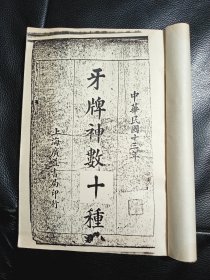 中華民國十三年
牙牌神數十種
上海
印行